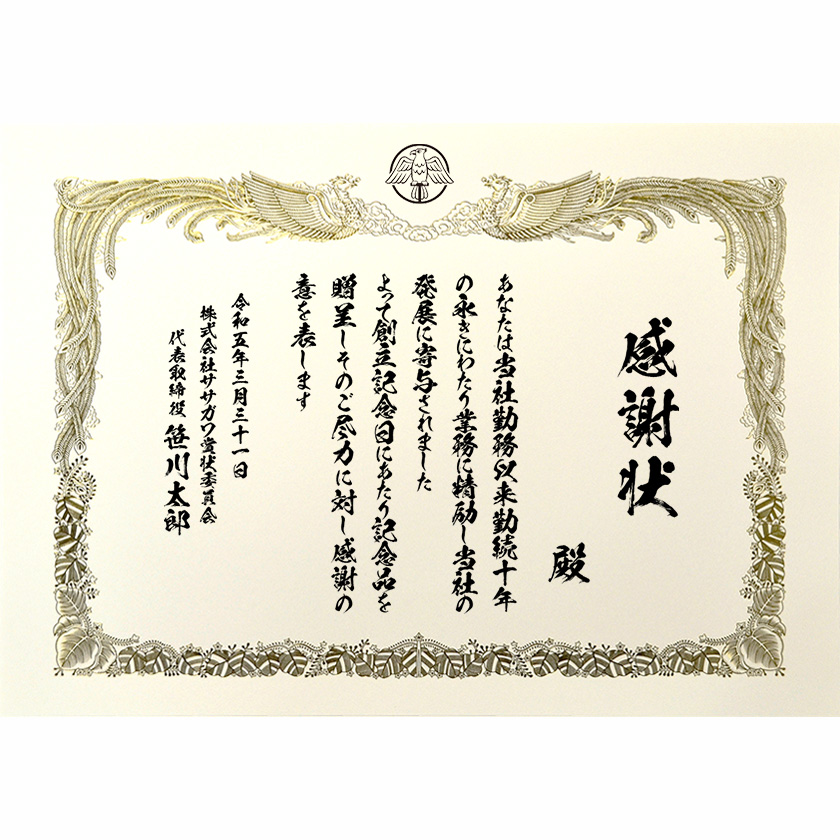 感謝状
殿
あなたは当社勤務以来勤続十年
の永きにわたり業務に精励し当社の
発展に寄与されました
よって創立記念日にあたり記念品を
贈呈しそのご尽力に対し感謝の
意を表します
令和五年三月三十一日
株式会社ササガワ賞状委員会
代表取締役 笹川太郎